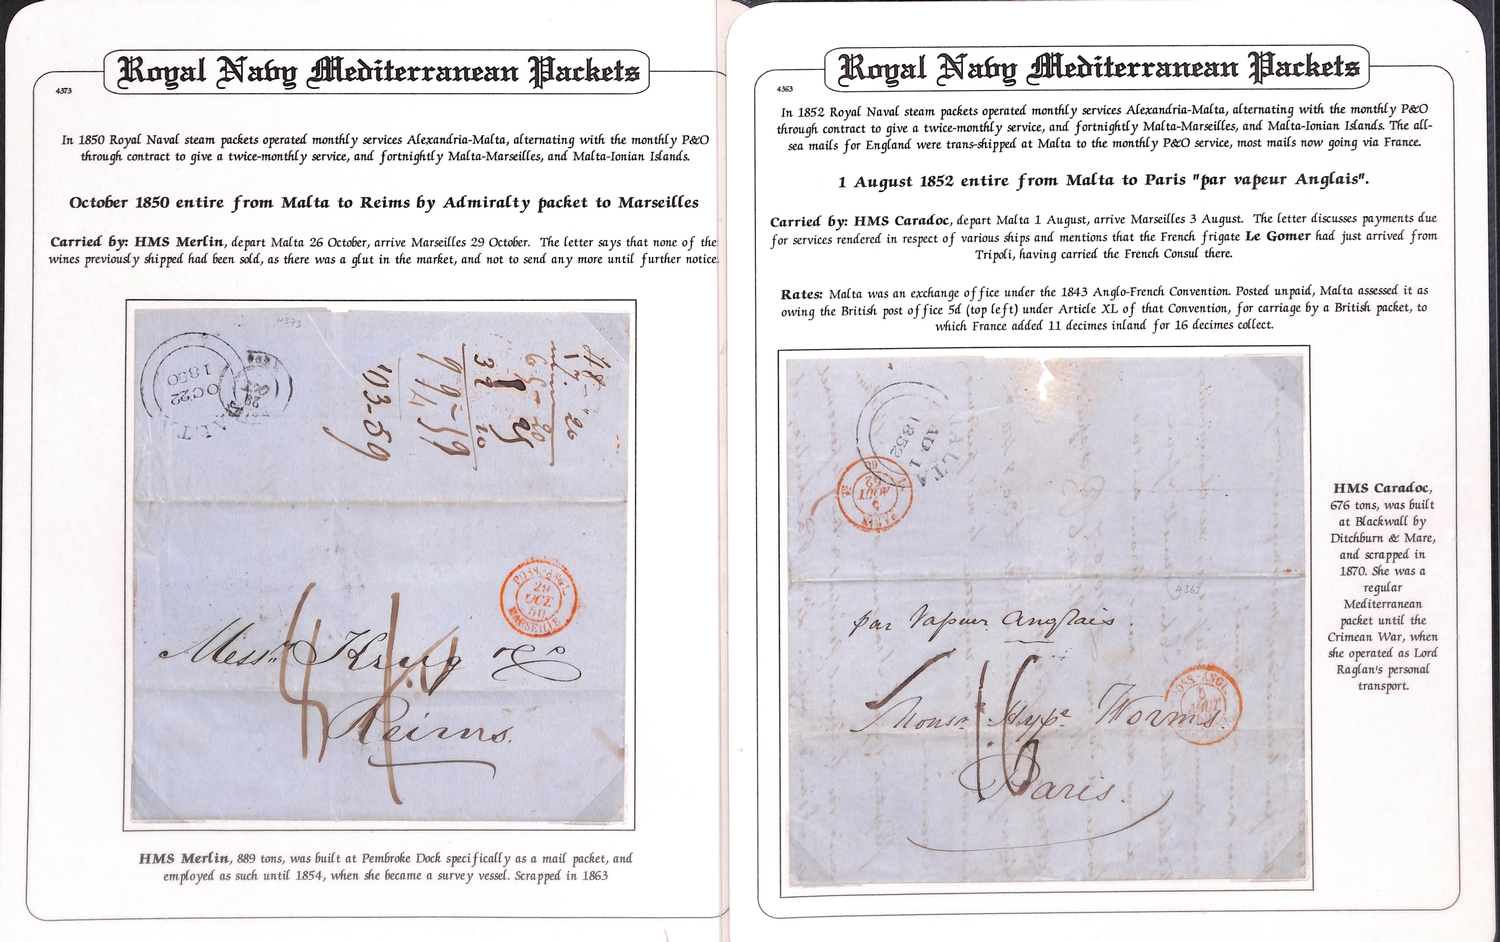 Royal Navy Mediterranean Packets
4373
In 1850 Royal Naval steam packets operated monthly services Alexandria-Malta, alternating with the monthly P&O
through contract to give a twice-monthly service, and fortnightly Malta-Marseilles, and Malta-Ionian Islands.
October 1850 entire from Malta to Reims by Admiralty packet to Marseilles
Carried by: HMS Merlin, depart Malta 26 October, arrive Marseilles 29 October. The letter says that none of the
wines previously shipped had been sold, as there was a glut in the market, and not to send any more until further notice.
4373
MALTA
OC 22
1850
103-59
99-59
POSS.-ANGL.
29
OCT.
50
MARSEILLE
Messrs Krug & Co
Reims.
HMS Merlin, 889 tons, was built at Pembroke Dock specifically as a mail packet, and
employed as such until 1854, when she became a survey vessel. Scrapped in 1863
Royal Navy Mediterranean Packets
4363
In 1852 Royal Naval steam packets operated monthly services Alexandria-Malta, alternating with the monthly P&O
through contract to give a twice-monthly service, and fortnightly Malta-Marseilles, and Malta-Ionian Islands. The all-
sea mails for England were trans-shipped at Malta to the monthly P&O service, most mails now going via France.
1 August 1852 entire from Malta to Paris "par vapeur Anglais".
Carried by: HMS Caradoc, depart Malta 1 August, arrive Marseilles 3 August. The letter discusses payments due
for services rendered in respect of various ships and mentions that the French frigate Le Gomer had just arrived from
Tripoli, having carried the French Consul there.
Rates: Malta was an exchange office under the 1843 Anglo-French Convention. Posted unpaid, Malta assessed it as
owing the British post office 5d (top left) under Article XL of that Convention, for carriage by a British packet, to
which France added 11 decimes inland for 16 decimes collect.
MALTA
AU 1
1852
PARIS
5
AOUT
52
4363
par Vapeur Anglais.
16
POSS.-ANGL.
Monsr Hypte Worms.
Paris.
HMS Caradoc,
676 tons, was built
at Blackwall by
Ditchburn & Mare,
and scrapped in
1870. She was a
regular
Mediterranean
packet until the
Crimean War, when
she operated as Lord
Raglan's personal
transport.